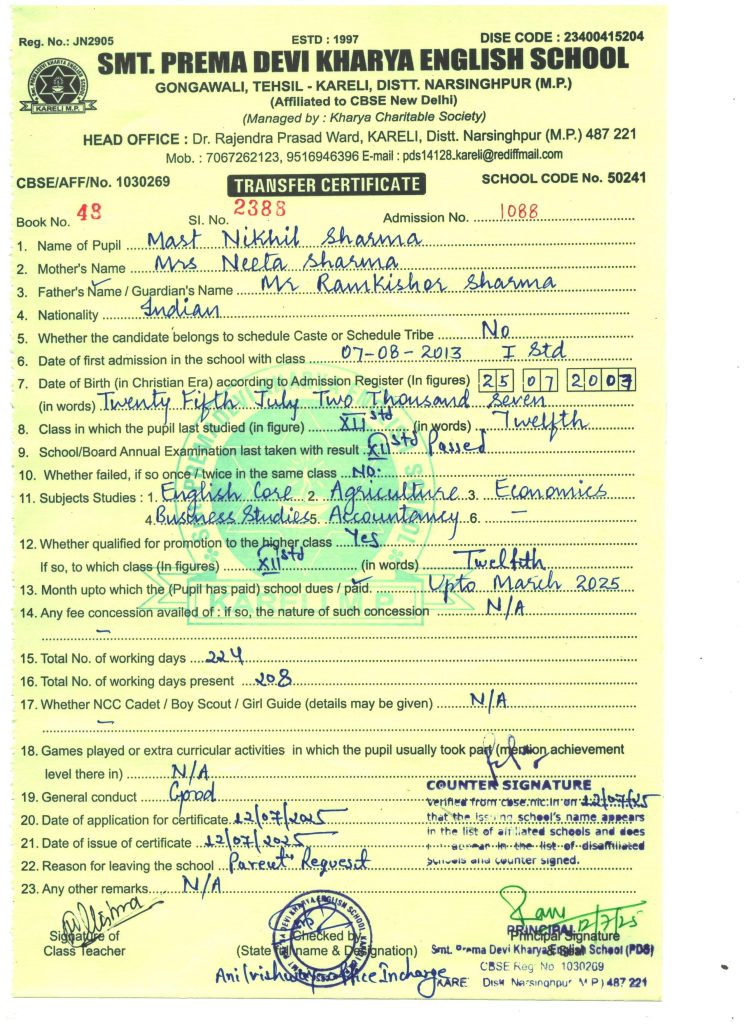 Reg. No.: JN2905 ESTD : 1997 DISE CODE : 23400415204
SMT. PREMA DEVI KHARYA ENGLISH SCHOOL
GONGAWALI, TEHSIL - KARELI, DISTT. NARSINGHPUR (M.P.)
(Affiliated to CBSE New Delhi)
(Managed by : Kharya Charitable Society)
HEAD OFFICE : Dr. Rajendra Prasad Ward, KARELI, Distt. Narsinghpur (M.P.) 487 221
Mob. : 7067262123, 9516946396 E-mail : pds14128.kareli@rediffmail.com
CBSE/AFF/No. 1030269 TRANSFER CERTIFICATE SCHOOL CODE No. 50241
Book No. 48 Sl. No. 2388 Admission No. 1088
1. Name of Pupil Mast Nikhil Sharma
2. Mother's Name Mrs Neeta Sharma
3. Father's Name / Guardian's Name Mr Ramkishor Sharma
4. Nationality Indian
5. Whether the candidate belongs to schedule Caste or Schedule Tribe No
6. Date of first admission in the school with class 07-08-2013 I Std
7. Date of Birth (in Christian Era) according to Admission Register (In figures) 25 07 2007
(in words) Twenty Fifth July Two Thousand Seven
8. Class in which the pupil last studied (in figure) XII std (in words) Twelfth
9. School/Board Annual Examination last taken with result XII std Passed
10. Whether failed, if so once / twice in the same class No.
11. Subjects Studies : 1. English Core 2. Agriculture 3. Economics
4. Business Studies 5. Accountancy 6. —
12. Whether qualified for promotion to the higher class Yes
If so, to which class (In figures) XII std (in words) Twelfth
13. Month upto which the (Pupil has paid) school dues / paid. Upto March 2025
14. Any fee concession availed of : if so, the nature of such concession N/A
—
15. Total No. of working days 224
16. Total No. of working days present 208
17. Whether NCC Cadet / Boy Scout / Girl Guide (details may be given) N/A
—
18. Games played or extra curricular activities in which the pupil usually took part (mention achievement
level there in) N/A
COUNTER SIGNATURE
19. General conduct Good
Verified from cbse.nic.in on 12/07/25
20. Date of application for certificate 12/07/2025
that the issuing school's name appears
in the list of affiliated schools and does
21. Date of issue of certificate 12/07/2025
appear in the list of disaffiliated
22. Reason for leaving the school Parent's Request
schools and counter signed.
23. Any other remarks N/A
12/7/25
PRINCIPAL
Signature of Checked by Principal Signature
Class Teacher (State full name & Designation) & Seal
Smt. Prema Devi Kharya English School (PDS)
CBSE Reg No 1030269
Office Incharge
KARELI Distt Narsinghpur (M.P.) 487 221
KARELI M.P.